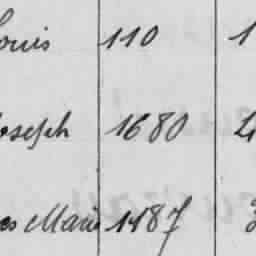 ouis 110 1
Joseph 1680
es Marie 1187